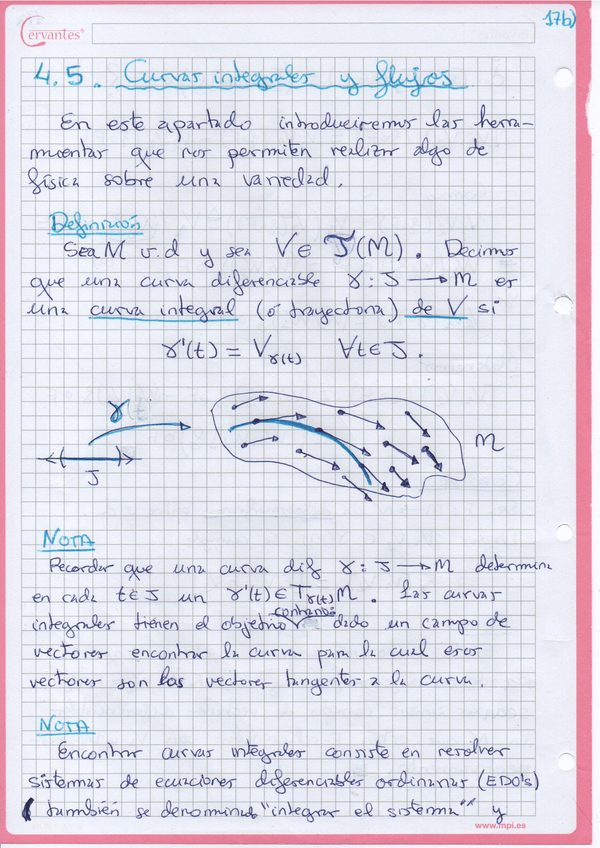 17b)
Cervantes
4.5. Curvas integrales y flujos
En este apartado introduciremos las herra-
mientas que nos permiten realizar algo de
física sobre una variedad.
Definición
Sea M v.d y sea V ∈ T(M). Decimos
que una curva diferenciable γ : J → M es
una curva integral (ó trayectoria) de V si
γ'(t) = V_γ(t) ∀t ∈ J.
γ
J
M
NOTA
Recordar que una curva dif γ : J → M determina
en cada t ∈ J un γ'(t) ∈ T_γ(t)M. Las curvas
integrales tienen el objetivo contrario dado un campo de
vectores encontrar la curva para la cual esos
vectores son los vectores tangentes a la curva.
NOTA
Encontrar curvas integrales consiste en resolver
sistemas de ecuaciones diferenciables ordinarias (EDO's)
( también se denomina "integrar el sistema" y
www.mpi.es